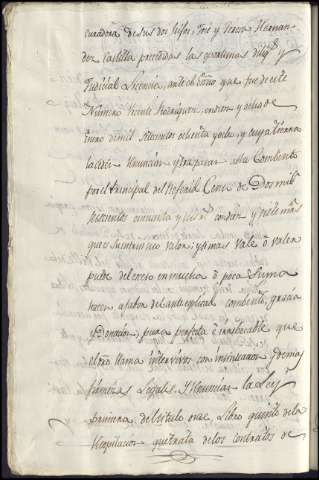 curadora de sus dos hijos, Jose y Teresa Hernan-
dez Castilla precedidas las oportunas diligs y
Judicial Licencia, ante el Esno que fue de este
Numero Vicente Rodriguez, en diez y ocho de
Enero de mil setecientos ochenta y ocho, y
la ceden renuncian y traspasan a dho Combento
por el Principal del Referido Censo de Dos mil
trescientos cinquenta y seis rs
que es su intrinseco valor; y si mas vale ò valer
puede del exceso en mucha ò poca suma
hacen a fabor del antes explicado combento, gracia
y Donacion, pura, perfecta è irrebocable que
el dro llama inter vivos con insinuacion y demas
firmezas Legales. Y Renuncian la Ley
primera del titulo onze, Libro quinto de la
Recopilacion que trata de los contratos de